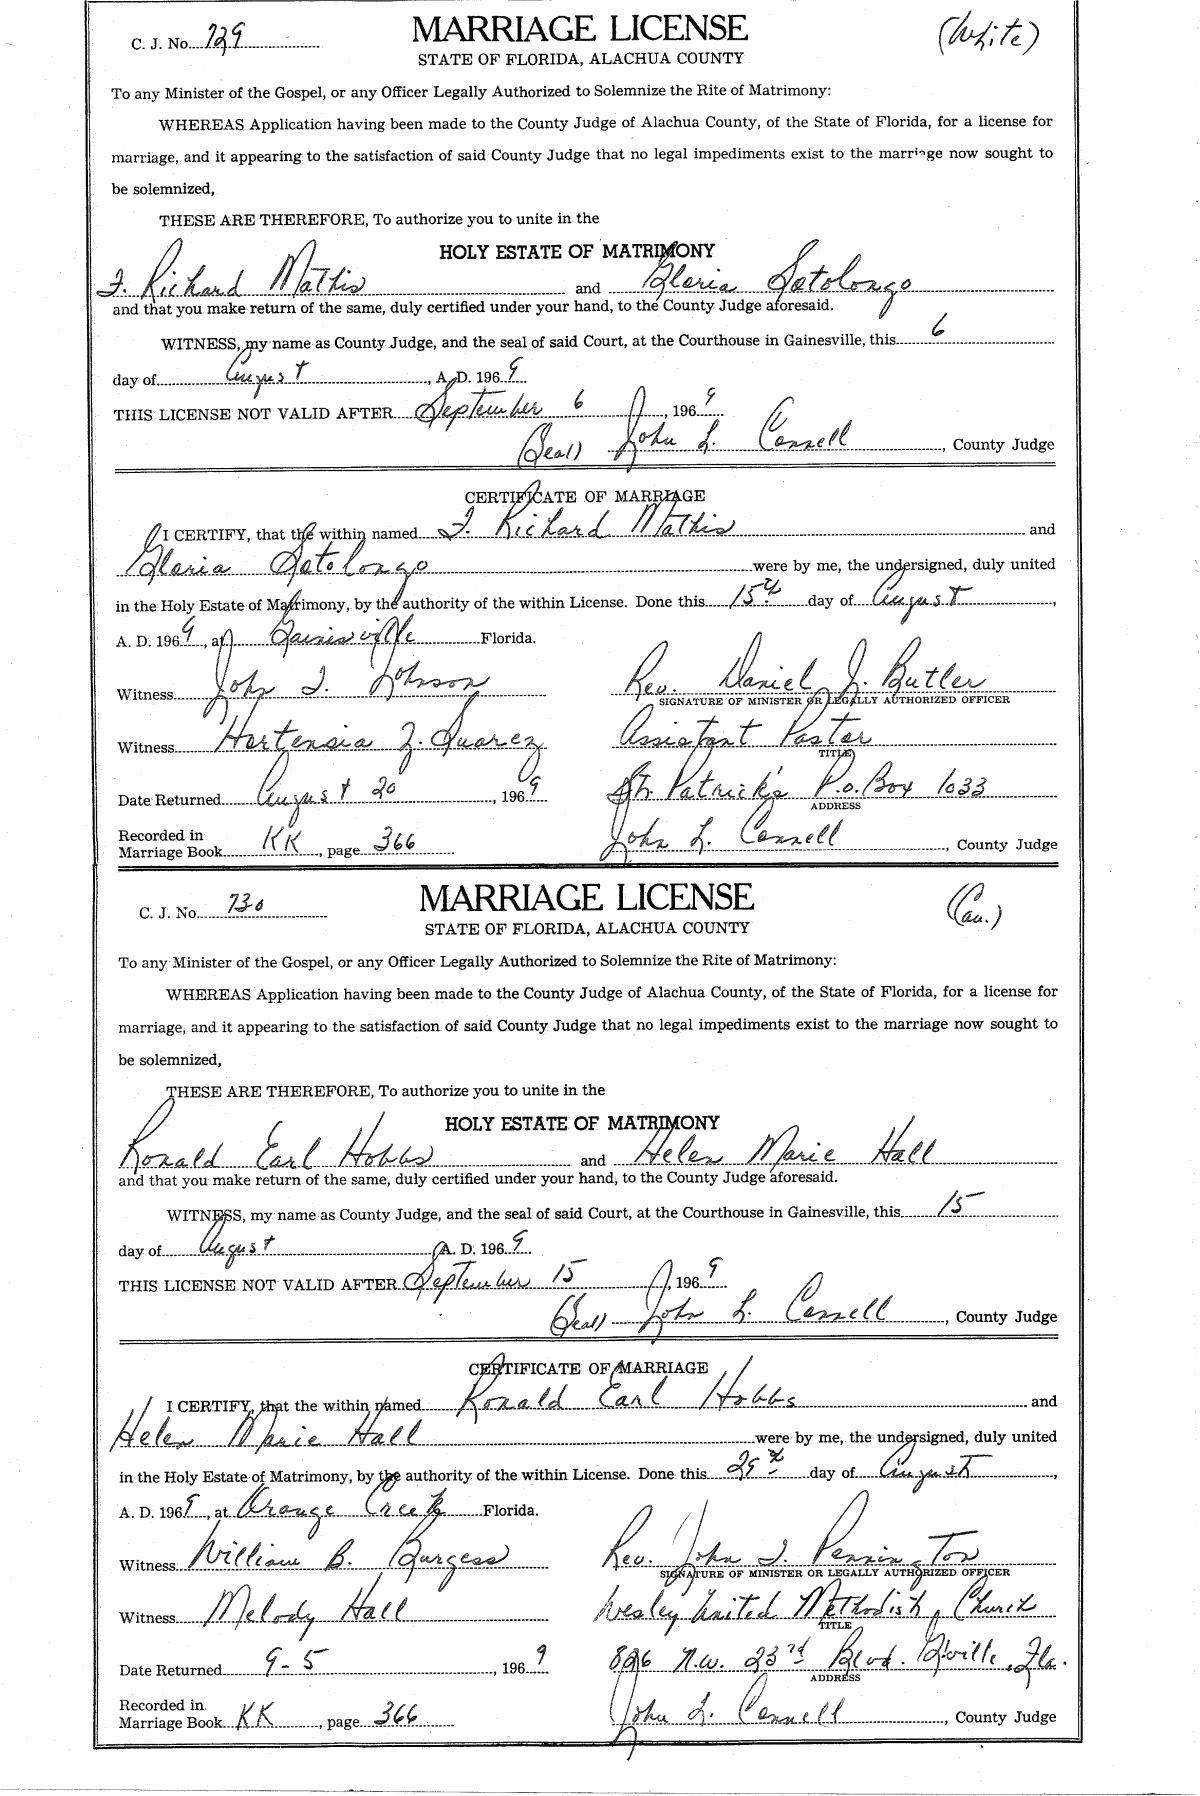 C. J. No. 729
MARRIAGE LICENSE
(White)
STATE OF FLORIDA, ALACHUA COUNTY
To any Minister of the Gospel, or any Officer Legally Authorized to Solemnize the Rite of Matrimony:
WHEREAS Application having been made to the County Judge of Alachua County, of the State of Florida, for a license for
marriage, and it appearing to the satisfaction of said County Judge that no legal impediments exist to the marriage now sought to
be solemnized,
THESE ARE THEREFORE, To authorize you to unite in the
HOLY ESTATE OF MATRIMONY
F. Richard Mathis and Gloria Sotolongo
and that you make return of the same, duly certified under your hand, to the County Judge aforesaid.
WITNESS, my name as County Judge, and the seal of said Court, at the Courthouse in Gainesville, this 6
day of August, A. D. 1969
THIS LICENSE NOT VALID AFTER September 6, 1969
(Seal) John L. Connell, County Judge
CERTIFICATE OF MARRIAGE
I CERTIFY, that the within named F. Richard Mathis and
Gloria Sotolongo were by me, the undersigned, duly united
in the Holy Estate of Matrimony, by the authority of the within License. Done this 15th day of August,
A. D. 1969, at Gainesville Florida.
Witness John T. Johnson Rev. Daniel J. Butler
SIGNATURE OF MINISTER OR LEGALLY AUTHORIZED OFFICER
Witness Hortensia Z. Suarez Assistant Pastor
TITLE
Date Returned August 20, 1969 St. Patrick's P.O. Box 1033
ADDRESS
Recorded in
Marriage Book KK, page 366 John L. Connell, County Judge
C. J. No. 730
MARRIAGE LICENSE
(Cau.)
STATE OF FLORIDA, ALACHUA COUNTY
To any Minister of the Gospel, or any Officer Legally Authorized to Solemnize the Rite of Matrimony:
WHEREAS Application having been made to the County Judge of Alachua County, of the State of Florida, for a license for
marriage, and it appearing to the satisfaction of said County Judge that no legal impediments exist to the marriage now sought to
be solemnized,
THESE ARE THEREFORE, To authorize you to unite in the
HOLY ESTATE OF MATRIMONY
Ronald Earl Hobbs and Helen Marie Hall
and that you make return of the same, duly certified under your hand, to the County Judge aforesaid.
WITNESS, my name as County Judge, and the seal of said Court, at the Courthouse in Gainesville, this 15
day of August A. D. 1969
THIS LICENSE NOT VALID AFTER September 15, 1969
(Seal) John L. Connell, County Judge
CERTIFICATE OF MARRIAGE
I CERTIFY, that the within named Ronald Earl Hobbs and
Helen Marie Hall were by me, the undersigned, duly united
in the Holy Estate of Matrimony, by the authority of the within License. Done this 29th day of August,
A. D. 1969, at Orange Creek Florida.
Witness William B. Burgess Rev. John T. Pennington
SIGNATURE OF MINISTER OR LEGALLY AUTHORIZED OFFICER
Witness Melody Hall Wesley United Methodist Church
TITLE
Date Returned 9-5, 1969 826 N.W. 23rd Blvd. G'ville, Fla.
ADDRESS
Recorded in
Marriage Book KK, page 366 John L. Connell, County Judge